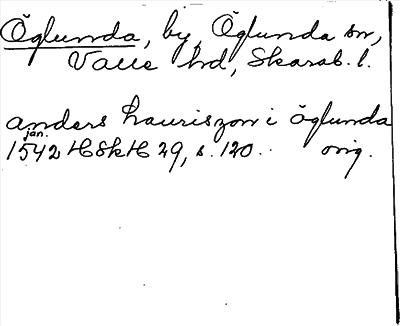 Öglunda, by, Öglunda sn,
Valle hd, Skarab. l.
anders Lauriszon i öglunda
jan.
1542 HSkH 29, s. 120. orig.